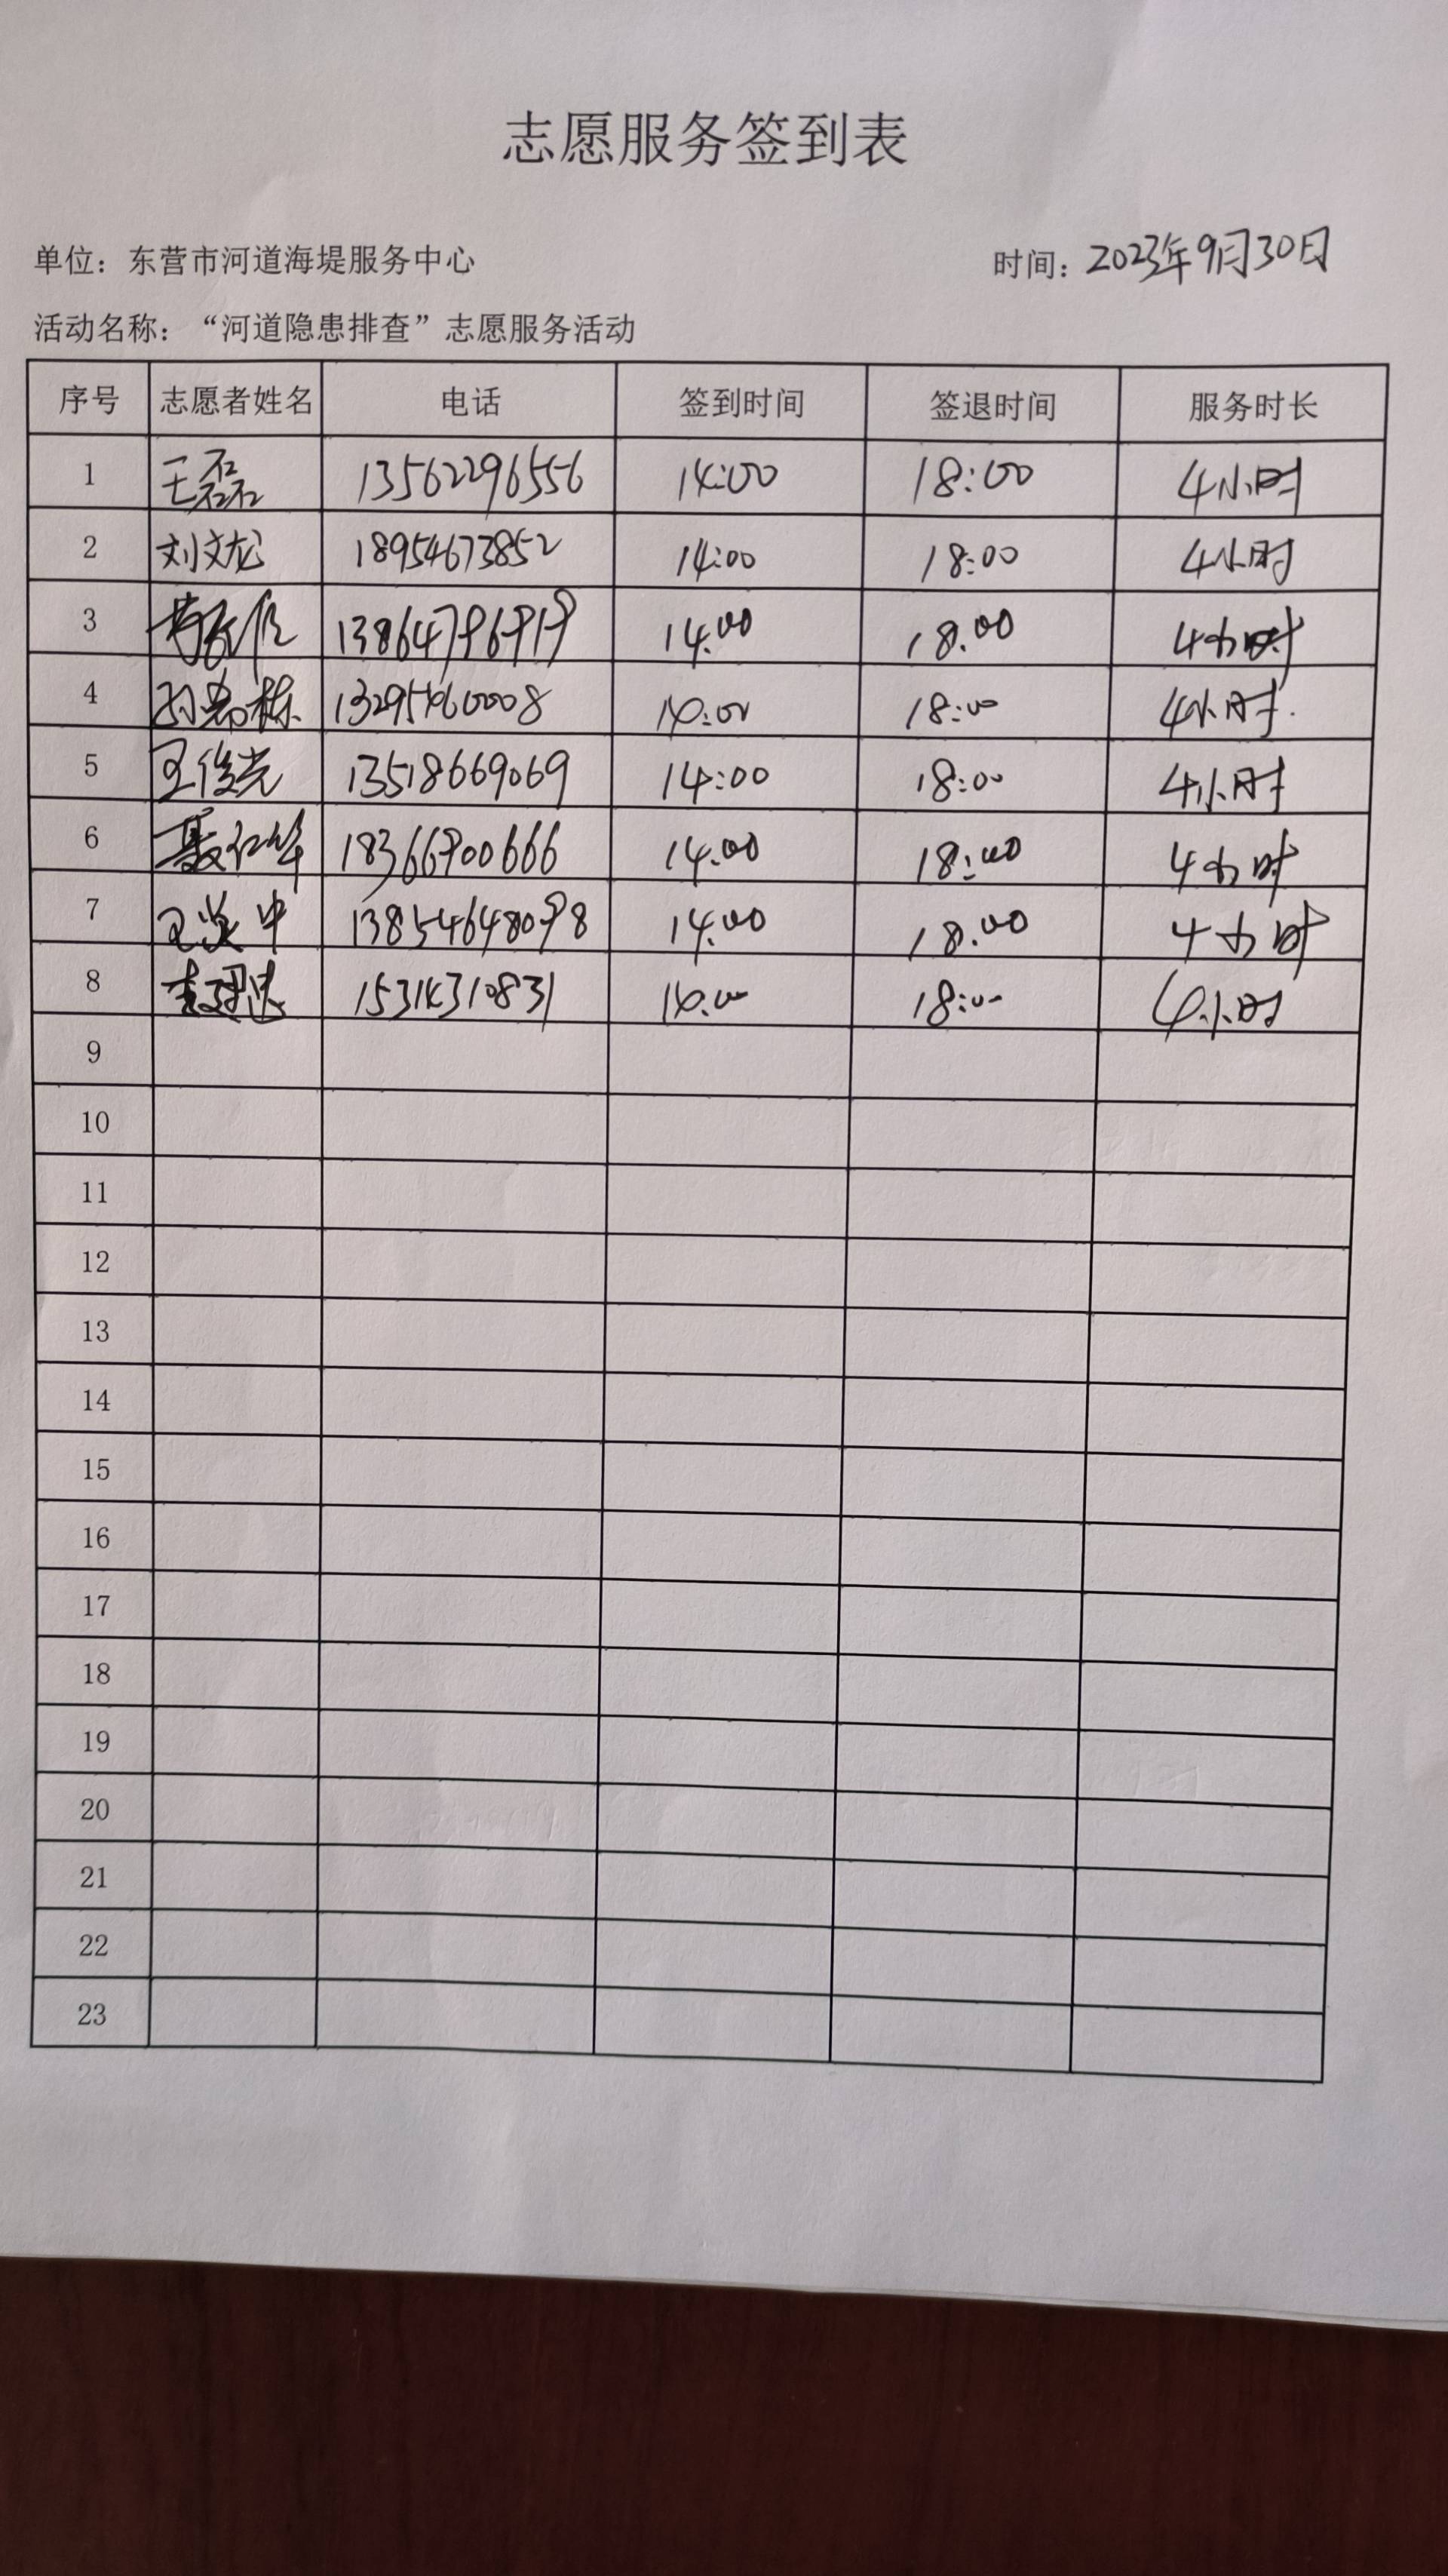 志愿服务签到表
单位：东营市河道海堤服务中心 时间：2023年9月30日
活动名称：“河道隐患排查”志愿服务活动
序号 志愿者姓名 电话 签到时间 签退时间 服务时长
1 王磊 13562296556 14:00 18:00 4小时
2 刘文龙 18954673852 14:00 18:00 4小时
3 13864796919 14.00 18.00 4小时
4 14:00 18:00 4小时.
5 王俊光 13518669069 14:00 18:00 4小时
6 聂红华 18366900666 14.00 18:00 4小时
7 13854648098 14.00 18.00 4小时
8 15314310831 14:00 18:00 4小时
9
10
11
12
13
14
15
16
17
18
19
20
21
22
23